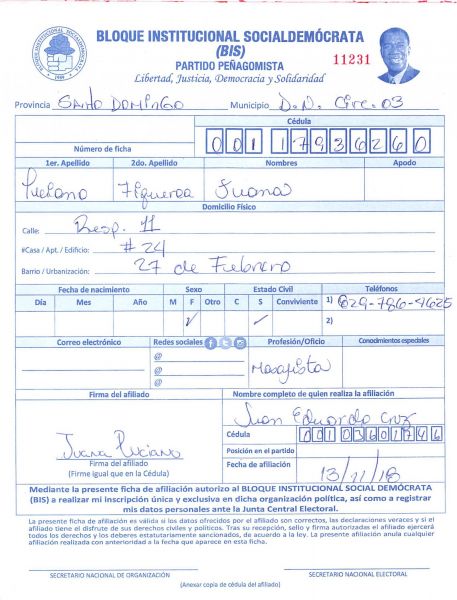 BLOQUE INSTITUCIONAL SOCIALDEMÓCRATA
(BIS)
PARTIDO PEÑAGOMISTA
11231
Libertad, Justicia, Democracia y Solidaridad
Provincia Santo Domingo Municipio D.N. Circ. 03
Cédula
Número de ficha
1er. Apellido 2do. Apellido Nombres Apodo
Luciano Figueroa Juana
Domicilio Físico
Calle: Resp. 11
#Casa / Apt. / Edificio: #24
Barrio / Urbanización: 27 de Febrero
Fecha de nacimiento Sexo Estado Civil Teléfonos
Día Mes Año M F Otro C S Conviviente 1) 829-786-4625
2)
Correo electrónico Redes sociales Profesión/Oficio Conocimientos especiales
@
@
@
Masajista
Firma del afiliado Nombre completo de quien realiza la afiliación
Juan Eduardo Cruz
Juana Luciano
Cédula 00103601746
Posición en el partido
Firma del afiliado
(Firme igual que en la Cédula)
Fecha de afiliación 13/11/18
Mediante la presente ficha de afiliación autorizo al BLOQUE INSTITUCIONAL SOCIAL DEMÓCRATA
(BIS) a realizar mi inscripción única y exclusiva en dicha organización política, así como a registrar
mis datos personales ante la Junta Central Electoral.
La presente ficha de afiliación es válida si los datos ofrecidos por el afiliado son correctos, las declaraciones veraces y si el
afiliado tiene el disfrute de sus derechos civiles y políticos. Tras su recepción, sello y firma autorizadas el afiliado ejercerá
todos los derechos y los deberes estatutariamente sancionados, de acuerdo a la ley. La presente afiliación anula cualquier
afiliación realizada con anterioridad a la fecha que aparece en esta ficha.
SECRETARIO NACIONAL DE ORGANIZACIÓN SECRETARIO NACIONAL ELECTORAL
(Anexar copia de cédula del afiliado)